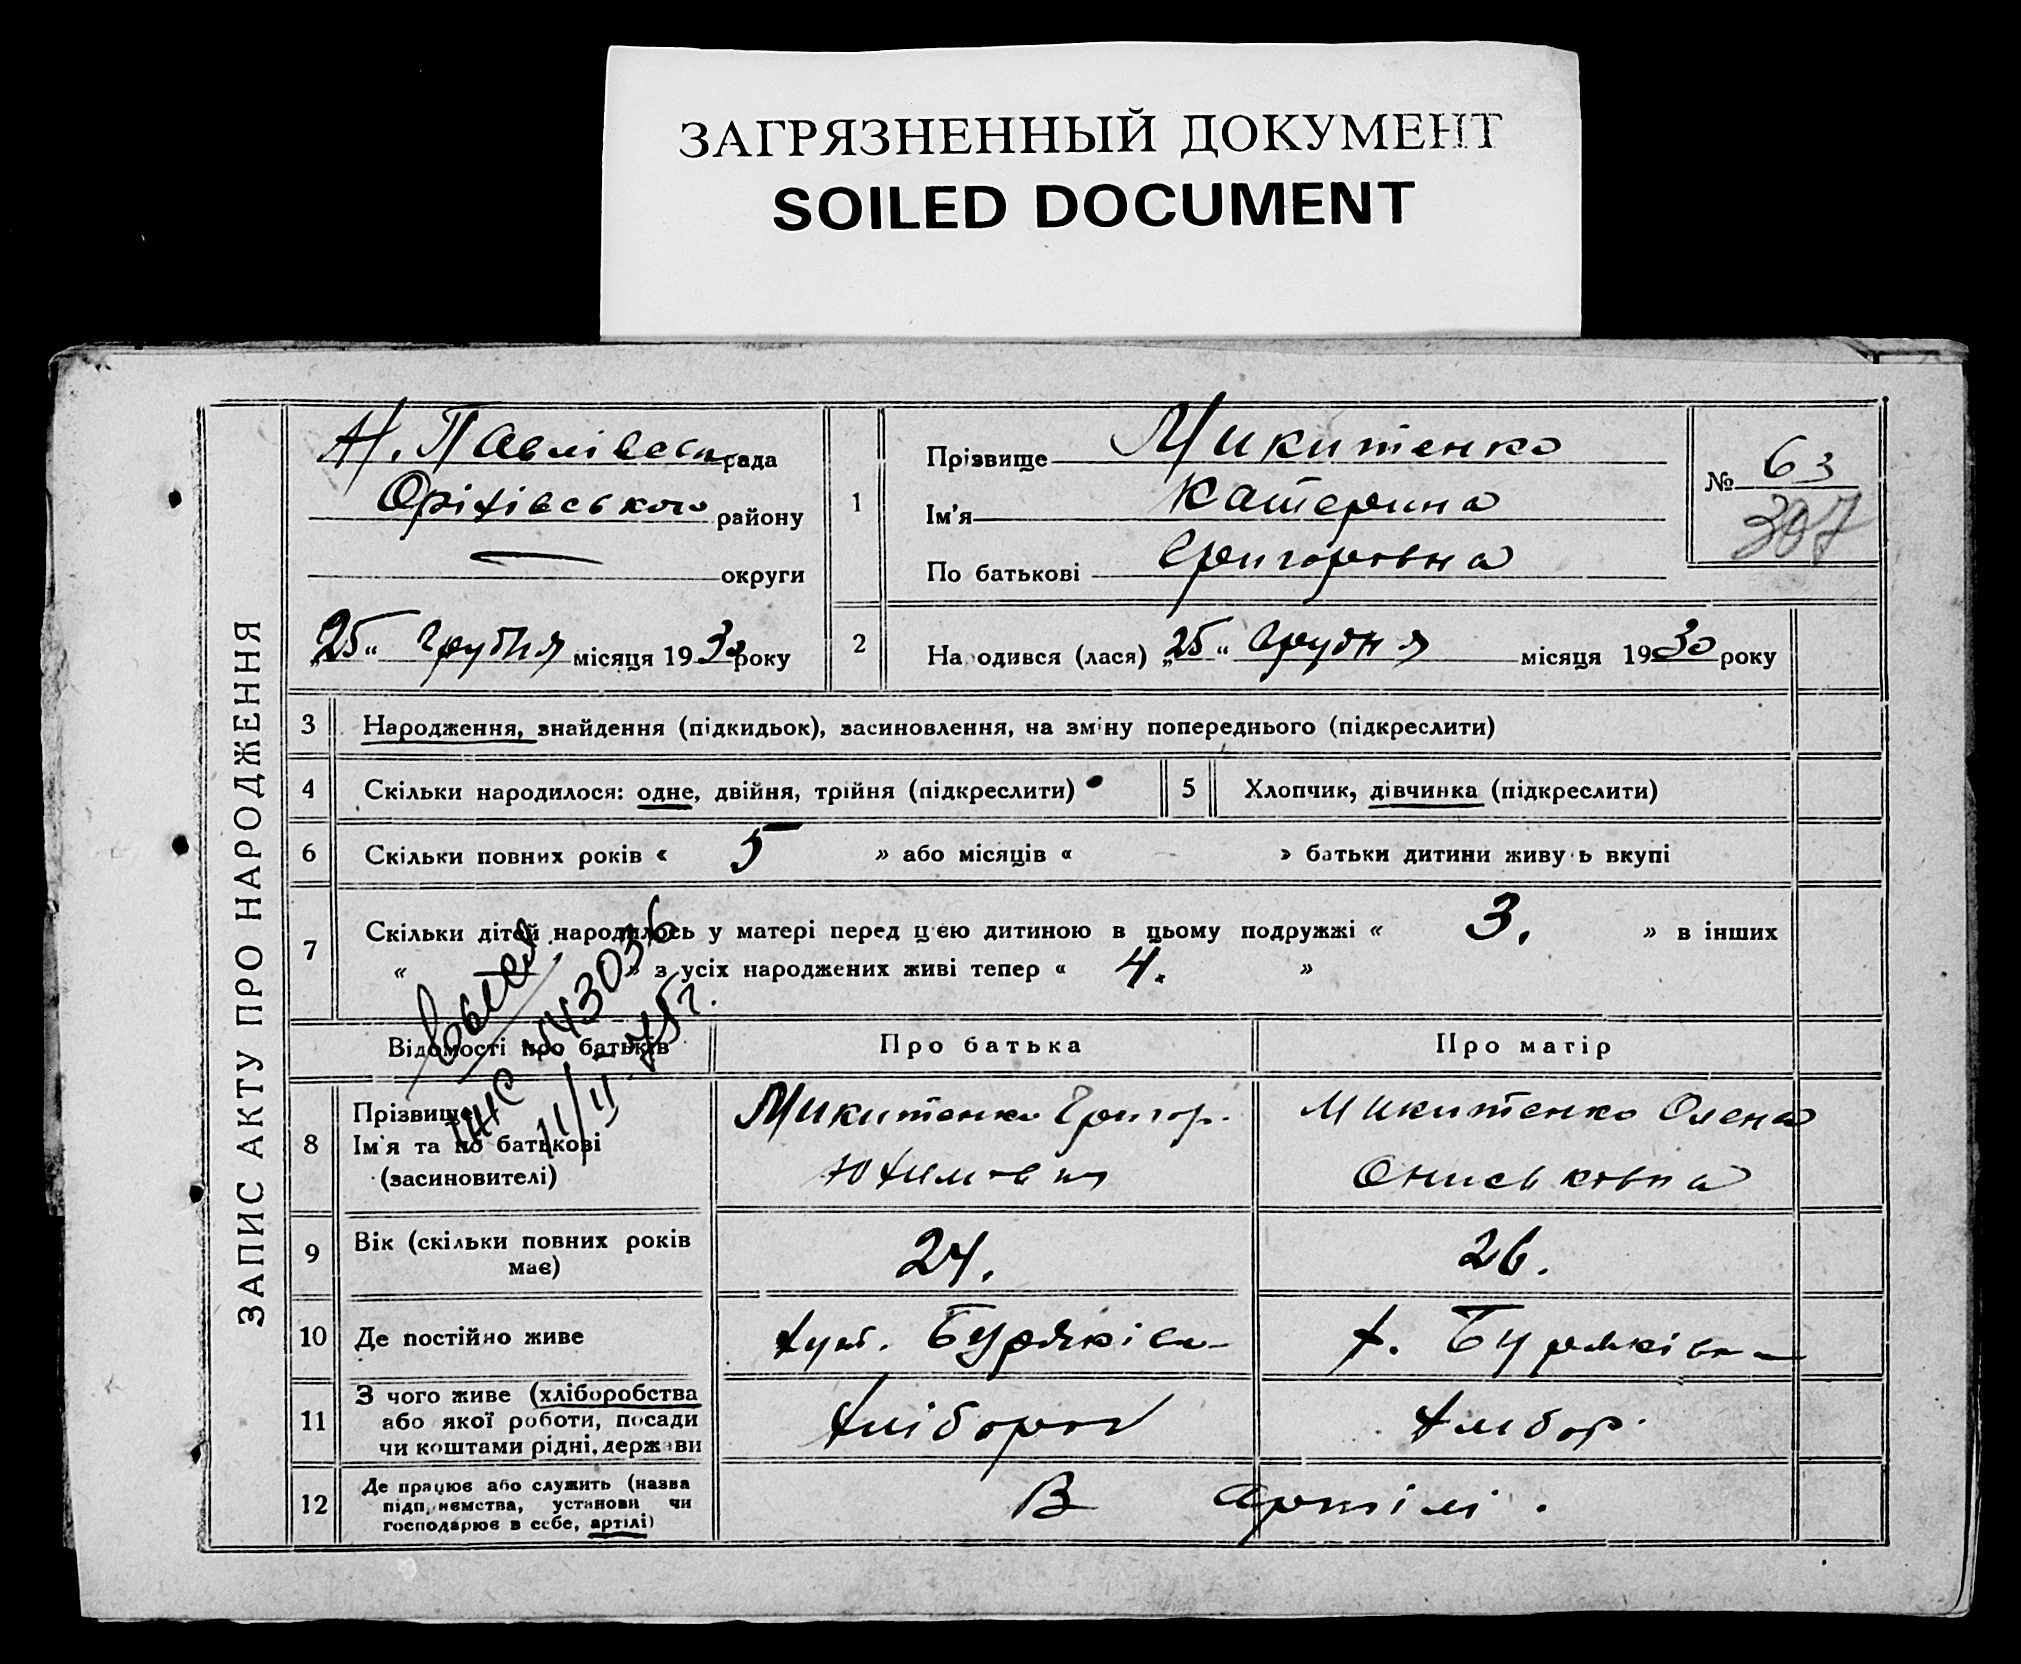 ЗАГРЯЗНЕННЫЙ ДОКУМЕНТ
SOILED DOCUMENT
ЗАПИС АКТУ ПРО НАРОДЖЕННЯ
Н. Павлівська рада
Оріхівського району
— округи
„25“ Грудня місяця 1930 року
1
Прізвище Микитенко
Ім'я Катерина
По батькові Григоровна
№ 63
307
2
Народився (лася) „25“ Грудня місяця 1930 року
3 Народження, знайдення (підкидьок), засиновлення, на зміну попереднього (підкреслити)
4 Скільки народилося: одне, двійня, трійня (підкреслити)
5 Хлопчик, дівчинка (підкреслити)
6 Скільки повних років « 5 » або місяців « — » батьки дитини живуть вкупі
7 Скільки дітей народилось у матері перед цією дитиною в цьому подружжі « 3. » в інших
« » з усіх народжених живі тепер « 4. »
11/II-75г.
Відомості про батьків
Про батька
Про матір
8 Прізвище
Ім'я та по батькові
(засиновителі)
Микитенко Григор.
Юхимович
Микитенко Олена
Ониськовна
9 Вік (скільки повних років
має)
24.
26.
10 Де постійно живе
хут. Буряківка
х. Буряківка
11 З чого живе (хліборобства
або якої роботи, посади
чи коштами рідні, держави
хлібороб
хлібор.
12 Де працює або служить (назва
підприємства, установи чи
господарює в себе, артілі)
В артілі.